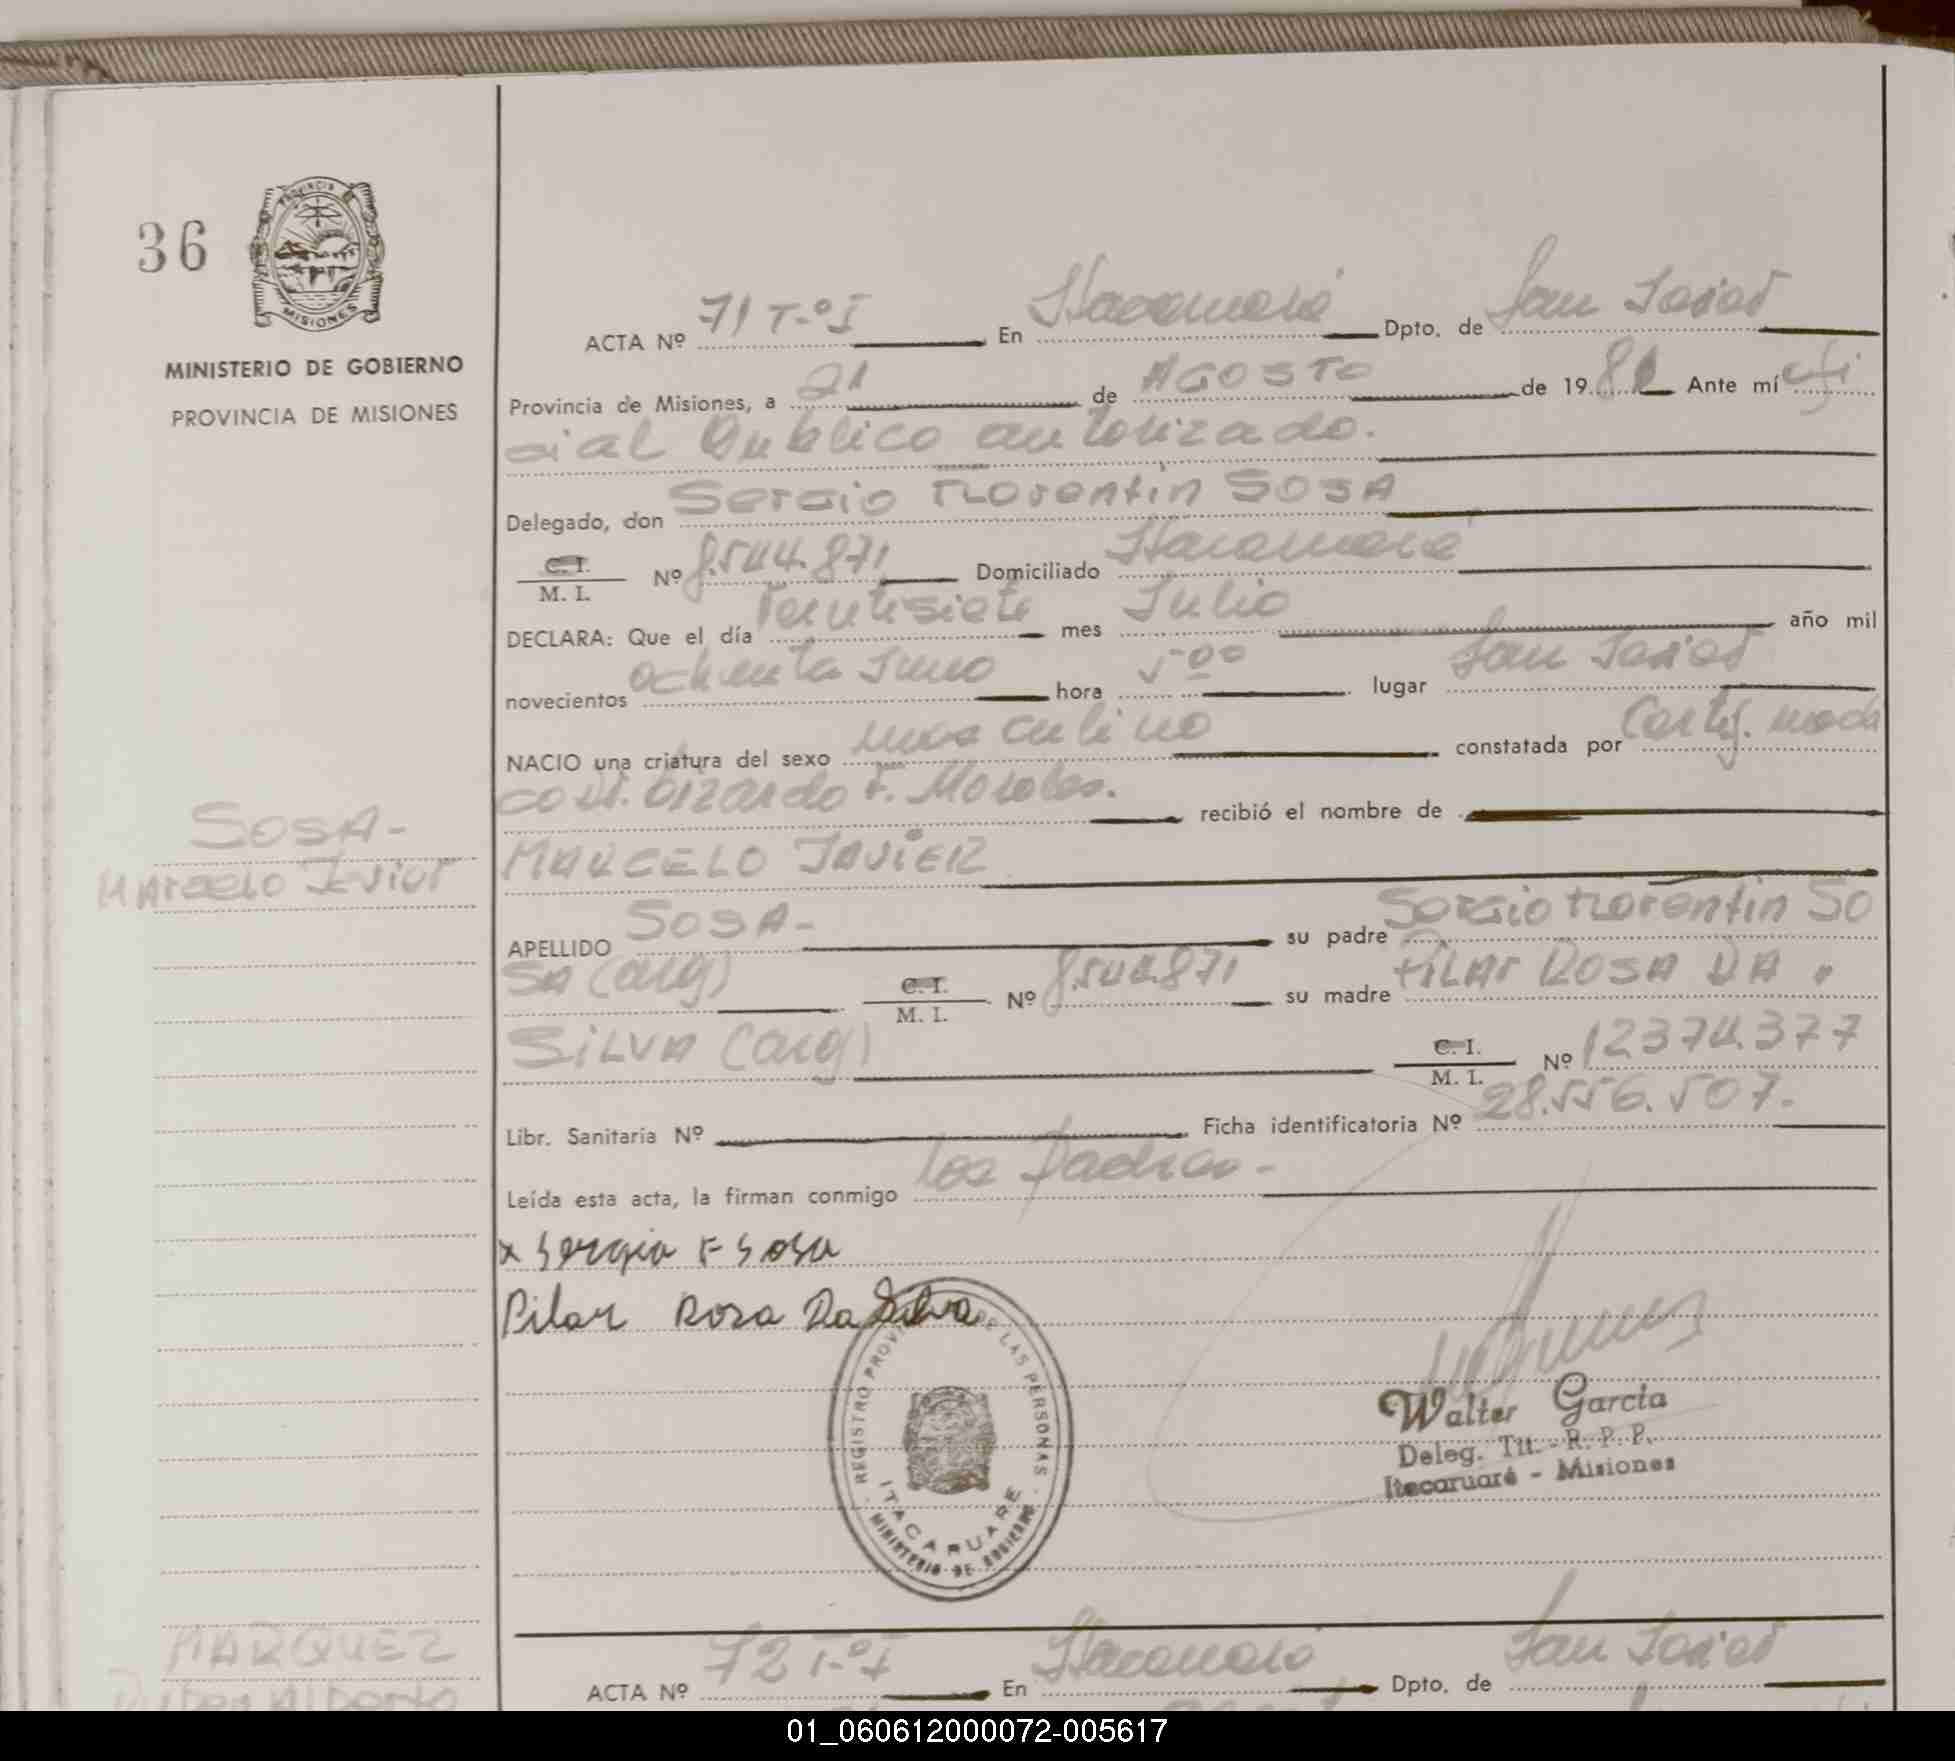 36
PROVINCIA DE
MISIONES
MINISTERIO DE GOBIERNO
PROVINCIA DE MISIONES
ACTA Nº 71 T-º I En Itacaruaré Dpto. de San Javier
Provincia de Misiones, a 21 de AGOSTO de 1981 Ante mí ofi
cial Público autorizado.
Delegado, don Sergio Florentín SOSA
C. I.
M. I. Nº 8.544.871 Domiciliado Itacaruaré
DECLARA: Que el día Veintisiete mes Julio año mil
novecientos ochenta y uno hora 5ºº lugar San Javier
NACIO una criatura del sexo masculino constatada por Certif. medi
co Dr. Lizardo F. Morales. recibió el nombre de
SOSA-
Marcelo Javier
MARCELO JAVIER
APELLIDO SOSA- su padre Sergio Florentín SO
SA (arg) C. I. M. I. Nº 8.544.871 su madre PILAR ROSA DA
SILVA (arg) C. I. M. I. Nº 12.374.377
Libr. Sanitaria Nº Ficha identificatoria Nº 28.556.507.
Leída esta acta, la firman conmigo los Padres-
x Sergio F Sosa
Pilar Rosa Da Silva
REGISTRO PROVINCIAL DE LAS PERSONAS
ITACARUARE
MINISTERIO DE GOBIERNO
Walter García
Deleg. Tit. - R. P. P.
Itacaruaré - Misiones
MARQUEZ
Alberto
ACTA Nº 72 T-º I En Itacaruaré Dpto. de San Javier
01_060612000072-005617